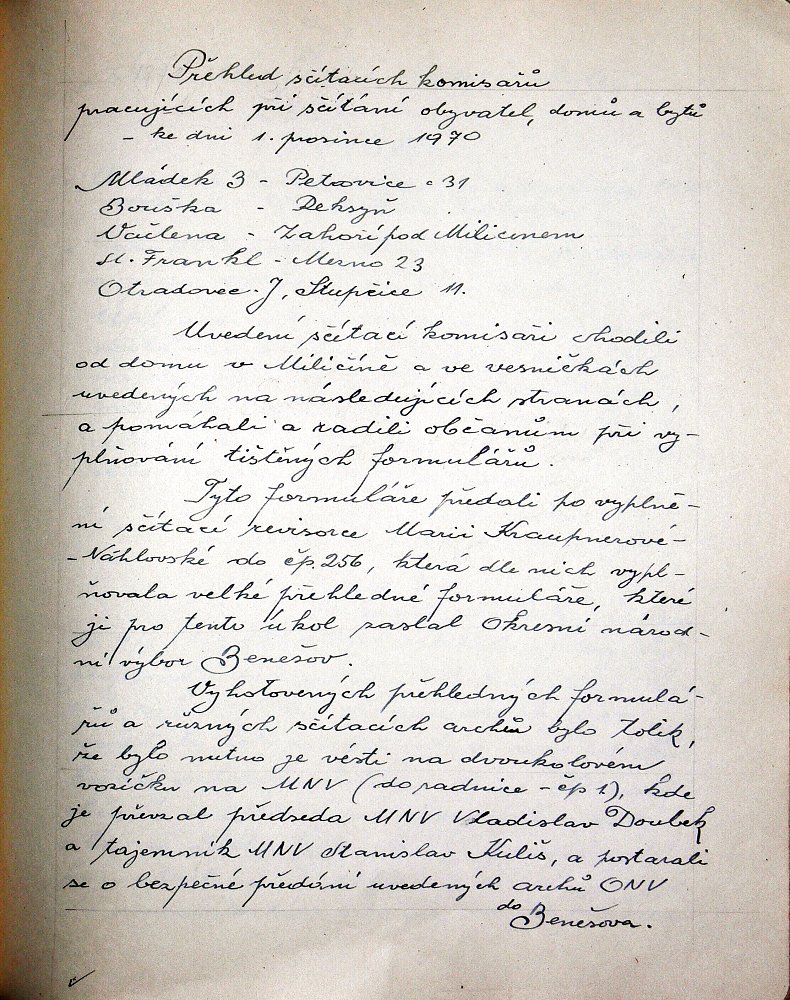 Přehled sčítacích komisařů
pracujících při sčítání obyvatel, domů a bytů
- ke dni 1. prosince 1970
Mládek J - Petrovice č 31
Bouška - Reksyň
Václena - Záhoří pod Miličínem
st. Frankl - Mezno 23
Otradovec J, Stupčice 11.
Uvedení sčítací komisaři chodili
od domu v Miličíně a ve vesničkách
uvedených na následujících stranách,
a pomáhali a radili občanům při vy-
plňování tištěných formulářů.
Tyto formuláře předali po vyplně-
ní sčítací revisorce Marii Kraupnerové-
-Náhlovské do čp. 256, která dle nich vypl-
ňovala velké přehledné formuláře, které
jí pro tento úkol zaslal Okresní národ-
ní výbor Benešov.
Vyhotovených přehledných formulá-
řů a různých sčítacích archů bylo tolik,
že bylo nutno je vésti na dvoukolovém
vozíčku na MNV (do radnice - čp 1), kde
je převzal předseda MNV Vladislav Doubek
a tajemník MNV Stanislav Kuliš, a postarali
se o bezpečné předání uvedených archů ONV
do Benešova.